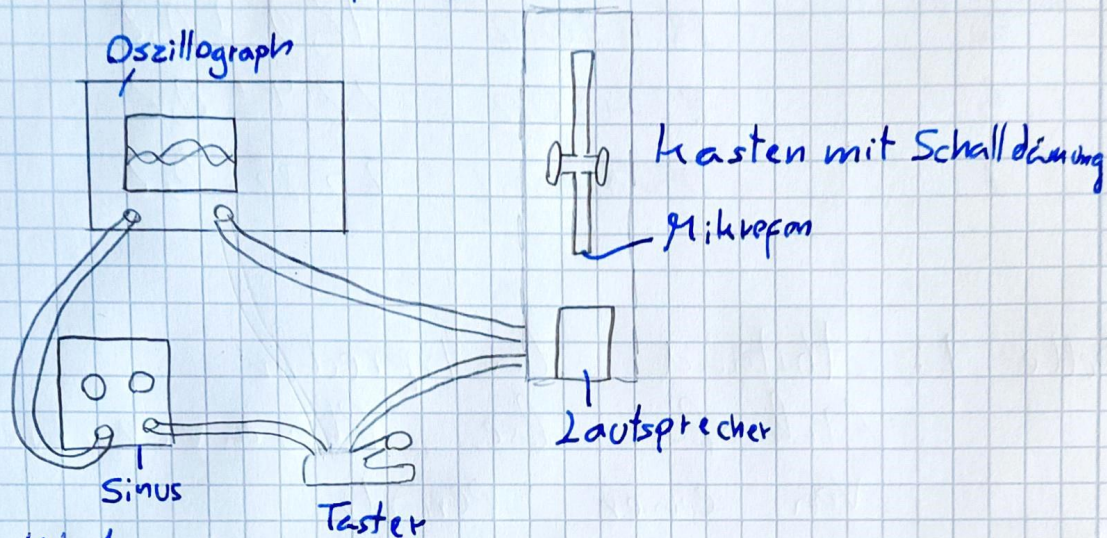 Oszillograph
Kasten mit Schalldämung
Mikrofon
Lautsprecher
Sinus
Taster